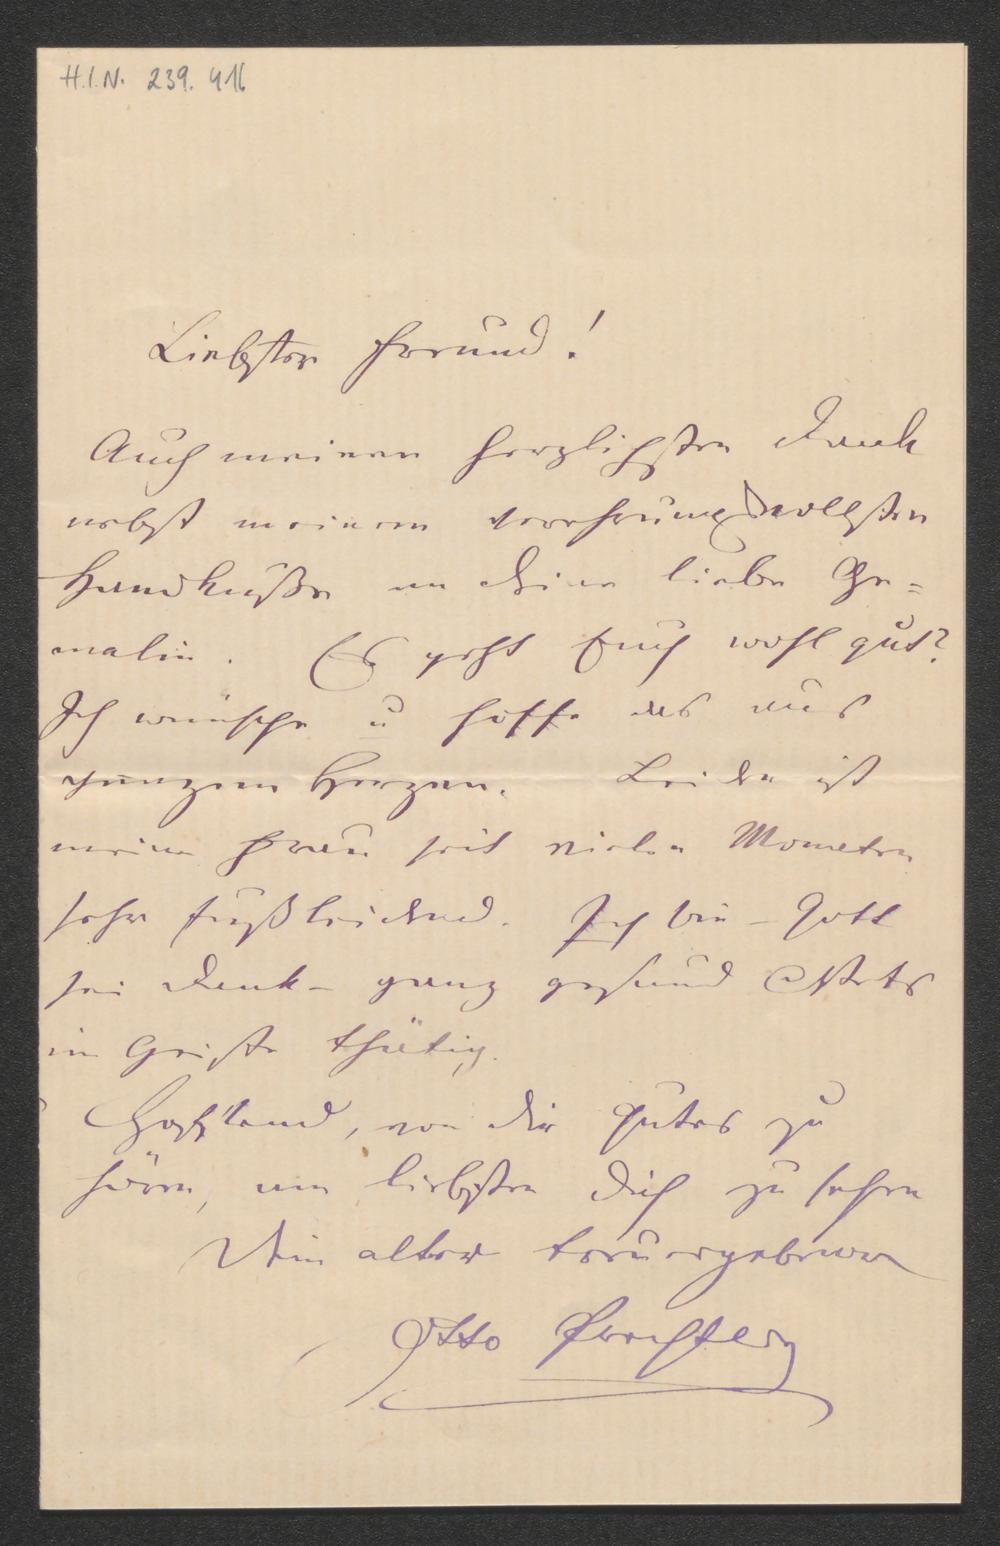 H.I.N. 239.416
Liebster Freund!
Auch meinen herzlichsten Dank
nebst meinem verehrungsvollsten
Handkuße an Deine liebe Ge=
malin. Es geht Euch wohl gut?
Ich wünsche u hoffe das aus
ganzem Herzen. Leider ist
meine Frau seit vielen Monaten
sehr fußleidend. Ich bin – Gott
sei Dank – ganz gesund & stets
im Geiste thätig.
Hoffend, von Dir Gutes zu
hören, am liebsten Dich zu sehen
Dein alter treuergebener
Otto Prechtler